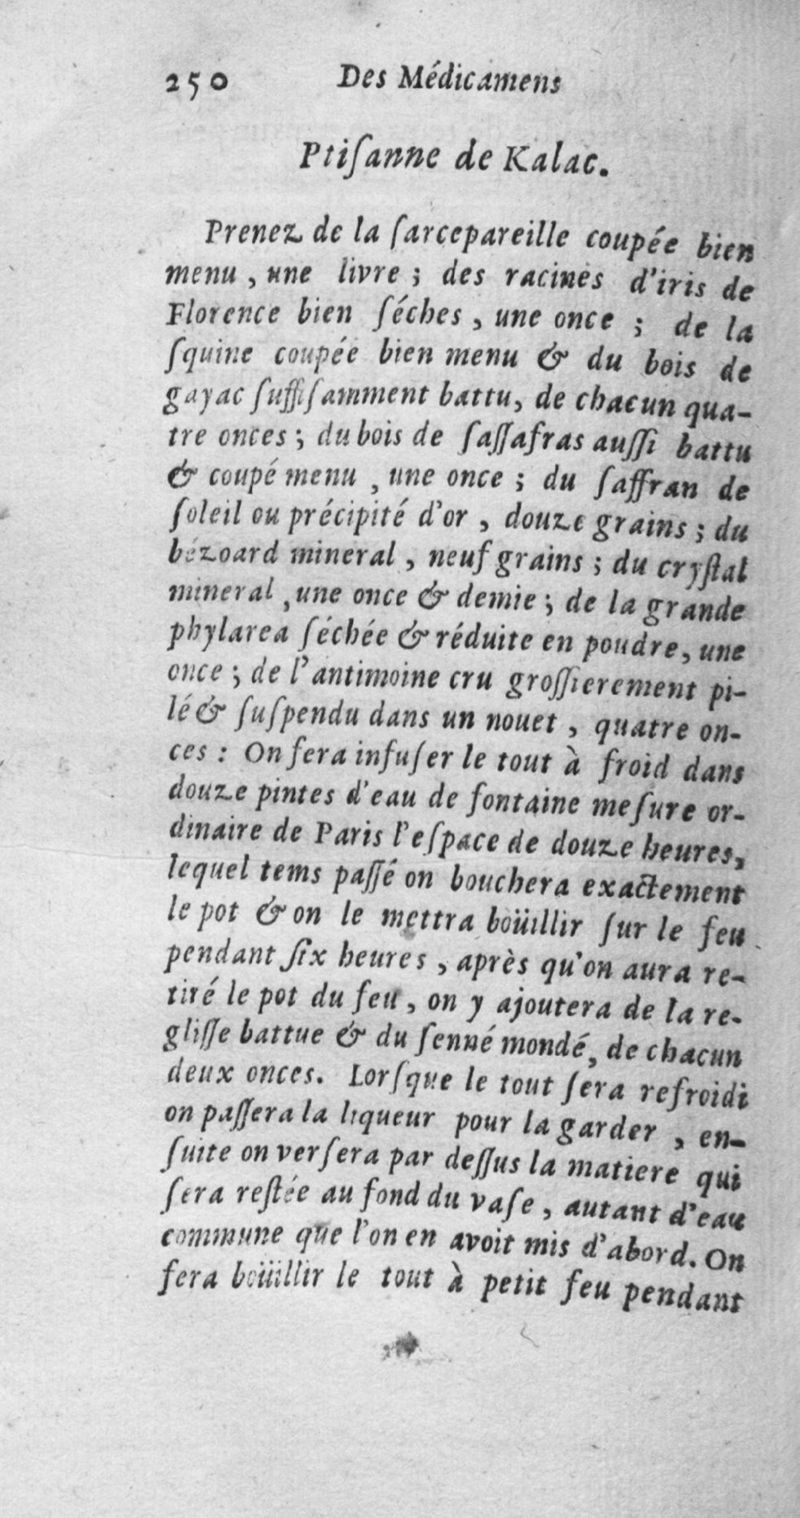 250 Des Médicamens
Ptiſanne de Kalac.
Prenez de la ſarcepareille coupée bien
menu, une livre ; des racines d'iris de
Florence bien ſéches, une once ; de la
ſquine coupée bien menu & du bois de
gayac ſuffiſamment battu, de chacun qua-
tre onces ; du bois de ſaſſafras auſſi battu
& coupé menu, une once ; du ſaffran de
ſoleil ou précipité d'or, douze grains ; du
bézoard mineral, neuf grains ; du cryſtal
mineral, une once & demie ; de la grande
phylarea ſéchée & réduite en poudre, une
once ; de l'antimoine cru groſſierement pi-
lé & ſuſpendu dans un nouet, quatre on-
ces : On fera infuſer le tout à froid dans
douze pintes d'eau de fontaine meſure or-
dinaire de Paris l'eſpace de douze heures,
lequel tems paſſé on bouchera exactement
le pot & on le mettra boüillir ſur le feu
pendant ſix heures, après qu'on aura re-
tiré le pot du feu, on y ajoutera de la re-
gliſſe battue & du ſenné mondé, de chacun
deux onces. Lorſque le tout ſera refroidi
on paſſera la liqueur pour la garder, en-
ſuite on verſera par deſſus la matiere qui
ſera reſtée au fond du vaſe, autant d'eau
commune que l'on en avoit mis d'abord. On
fera boüillir le tout à petit feu pendant